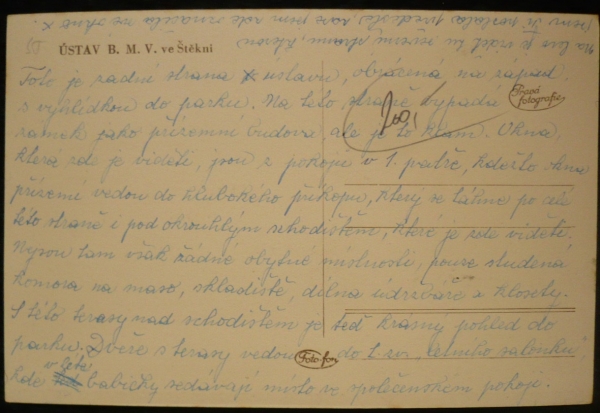 ÚSTAV B. M. V. ve Štěkni
Toto je zadní strana ústavu, obrácená na západ
s vyhlídkou do parku. Na této straně vypadá
zámek jako přízemní budova ale je to klam. Okna,
která zde je viděti, jsou z pokojů v 1. patře, kdežto okna
přízemí vedou do hlubokého příkopu, který se táhne po celé
této straně i pod okrouhlým schodištěm, které je zde viděti.
Nejsou tam však žádné obytné místnosti, pouze studená
komora na maso, skladiště, dílna údržbáře a klosety.
S této terasy nad schodištěm je teď krásný pohled do
parku. Dveře s terasy vedou do t. zv. „letního salonku",
kde v létě babičky sedávají místo ve společenském pokoji.
Pravá fotografie
Foto-fon